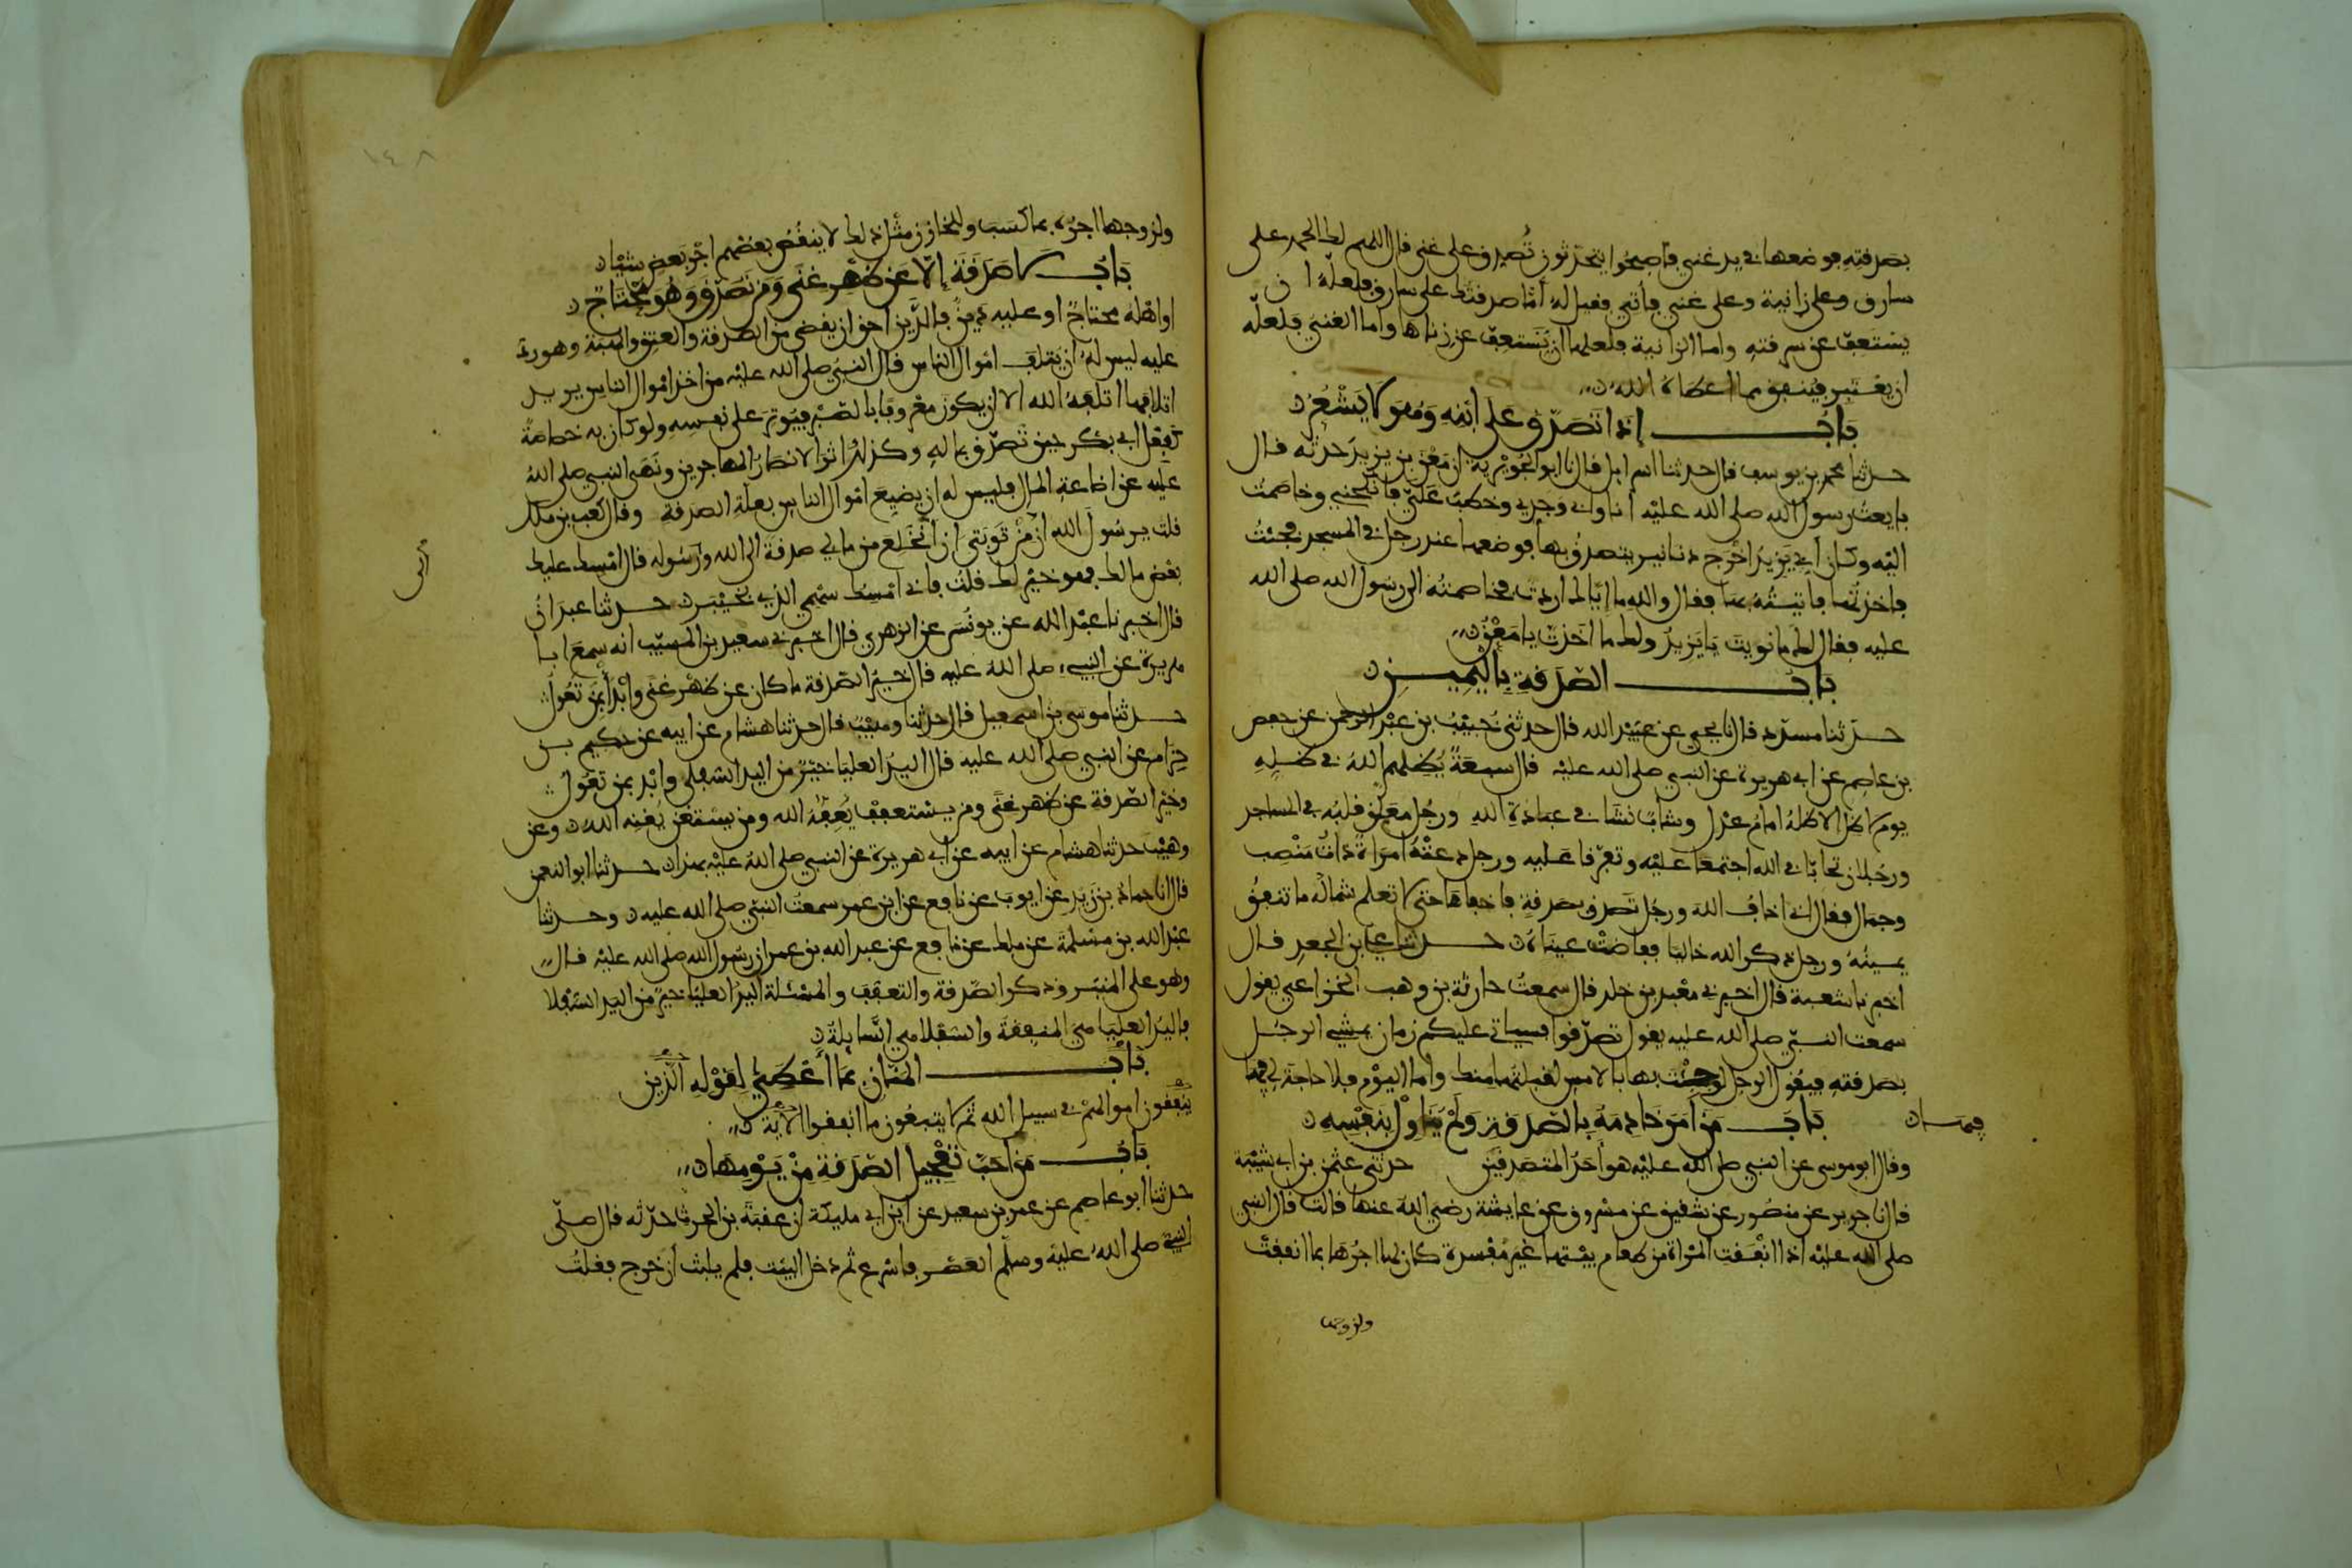 بصدقته فوضعها في يد غني فأصبحوا يتحدثون تُصدق على غني قال اللهم لك الحمد على
سارق وعلى زانية وعلى غني فأتي فقيل له أمّا صدقتك على سارق فلعله ان
يستعفّ عن سرقته واما الزانية فلعلها ان تستعفّ عن زناها واما الغنيّ فلعله
ان يعتبر فينفق مما اعطاه الله
باب اذا تصدّق على ابنه وهو لا يشعر
حدثنا محمد بن يوسف قال حدثنا اسرائيل قال نا ابو الجويرية ان معن بن يزيد حدثه قال
بايعت رسول الله صلى الله عليه أنا وابي وجدي وخطب عليّ فأنكحني وخاصمت
اليه وكان أبي يزيد اخرج دنانير يتصدق بها فوضعها عند رجل في المسجد فجئت
فاخذتها فأتيته بها فقال والله ما إيّاك اردت فخاصمته الى رسول الله صلى الله
عليه فقال لك ما نويت يا يزيد ولك ما اخذت يا معن
باب الصّدقة باليمين
حدثنا مسدّد قال نا يحيى عن عبيد الله قال حدثني خُبيب بن عبد الرحمن عن حفص
بن عاصم عن ابي هريرة عن النبي صلى الله عليه قال سبعة يُظلهم الله في ظله
يوم لا ظل الا ظله امام عدل وشابّ نشا في عبادة الله ورجل معلق قلبه في المساجد
ورجلان تحابّا في الله اجتمعا عليه وتفرّقا عليه ورجل دعته امراة ذات منصب
وجمال فقال اني اخاف الله ورجل تصدق بصدقة فاخفاها حتى لا تعلم شماله ما تنفق
يمينه ورجل ذكر الله خاليا ففاضت عيناه حدثنا علي بن الجعد قال
اخبرنا شعبة قال اخبرني معبد بن خلد قال سمعت حارثة بن وهب الخزاعي يقول
سمعت النبيّ صلى الله عليه يقول تصدّقوا فسياتي عليكم زمان يمشي الرجل
بصدقته فيقول الرجل لو جئت بها بالامس لقبلتها منك واما اليوم فلا حاجة لي فيها
باب من أمر خادمه بالصّدقة ولم يناول بنفسه
وقال ابو موسى عن النبي صلى الله عليه هو أحد المتصدقين حدثني عثمن بن ابي شيبة
قال نا جرير عن منصور عن شقيق عن مسروق عن عايشة رضي الله عنها قالت قال النبي
صلى الله عليه اذا انفقت المراة من طعام بيتها غير مفسدة كان لها اجرها بما انفقت
ولزوجها
١٤٨
ولزوجها اجره بما كسب وللخازن مثل ذلك لا ينقص بعضهم اجر بعض شيئا
باب لا صدقة إلّا عن ظهر غنى ومن تصدّق وهو محتاج
او اهله محتاج او عليه دين فالدّين احق ان يقضى من الصدقة والعتق والهبة وهو ردّ
عليه ليس له ان يتلف اموال الناس قال النبي صلى الله عليه من اخذ اموال الناس يريد
اتلافها اتلفه الله الا ان يكون معروفا بالصّبر فيوثر على نفسه ولو كان به خصاصة
كفعل ابي بكر حين تصدّق بماله وكذلك اثر الانصار المهاجرين ونهى النبي صلى الله
عليه عن اضاعة المال فليس له ان يضيع اموال الناس بعلة الصدقة وقال كعب بن ملك
قلت يرسول الله ان من توبتي ان أنخلع من مالي صدقة الى الله ورسوله قال امسك عليك
بعض مالك فهو خير لك قلت فاني امسك سهمي الذي بخيبر حدثنا عبدان
قال اخبرنا عبد الله عن يونس عن الزهري قال اخبرني سعيد بن المسيّب انه سمع ابا
هريرة عن النبيء صلى الله عليه قال خير الصّدقة ما كان عن ظهر غنى وابدأ بمن تعول
حدثنا موسى بن اسمعيل قال حدثنا وهيب قال حدثنا هشام عن ابيه عن حكيم بن
حزام عن النبي صلى الله عليه قال اليد العليا خير من اليد السفلى وابد بمن تعول
وخير الصّدقة عن ظهر غنى ومن يستعفف يُعفّه الله ومن يستغن يُغنه الله وعن
وهيب حدثنا هشام عن ابيه عن ابي هريرة عن النبي صلى الله عليه بهذا حدثنا ابو النعمن
قال نا حماد بن زيد عن ايوب عن نافع عن ابن عمر سمعت النبي صلى الله عليه وحدثنا
عبد الله بن مسلمة عن ملك عن نافع عن عبد الله بن عمر ان رسول الله صلى الله عليه قال
وهو على المنبر وذكر الصّدقة والتعفف والمسئلة اليد العليا خير من اليد السفلا
فاليد العليا هي المنفقة والسفلا هي السّايلة
باب المنّان بما أعطى لقوله الذين
ينفقون اموالهم في سبيل الله ثم لا يتبعون ما انفقوا الآية
باب من احبّ تعجيل الصّدقة من يومها
حدثنا ابو عاصم عن عمر بن سعيد عن ابن ابي مليكة ان عقبة بن الحرث حدّثه قال صلّى
النبي صلى الله عليه وسلم العصر فاسرع ثم دخل البيت فلم يلبث ان خرج فقلت